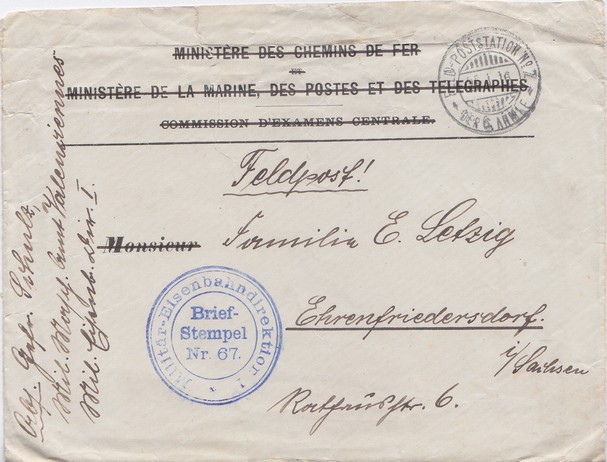 MINISTÈRE DES CHEMINS DE FER
ET
MINISTÈRE DE LA MARINE, DES POSTES ET DES TÉLÉGRAPHES
COMMISSION D'EXAMENS CENTRALE.
POSTSTATION No 7
DER 6. ARMEE
Feldpost!
Monsieur Familie E. Letzig
Ehrenfriedersdorf.
i/Sachsen
Rathausstr. 6.
Militär-Eisenbahndirektion 1
Brief-
Stempel
Nr. 67.
Abs. Gefr. Schulz,
Mil. Valenciennes
Mil. Eisenb. Dir. I.